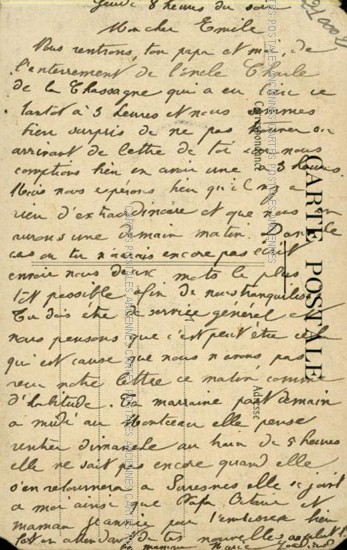 Jeudi 8 heures du soir
Mon cher Emile
Nous rentrons, ton papa et moi, de
l'enterrement de l'oncle Charle
de la Chassagne qui a eu lieu ce
tantot à 3 heures et nous sommes
bien surpris de ne pas trouver en
arrivant de lettre de toi car nous
comptions bien en avoir une à 3 heures.
Mais nous esperons bien qu'il n'y a
rien d'extraordinaire et que nous en
aurons une demain matin. Dans le
cas ou tu n'aurais encore pas écrit
envoie nous deux mots le plus
tot possible afin de nous tranquiliser
Tu dois être de service général et
nous pensons que c'est peut être cela
qui est cause que nous n'avons pas
reçu notre lettre ce matin comme
d'habitude. Ta marraine part demain
a midi au Montceau elle pense
rentrer dimanche au train de 5 heures
elle ne sait pas encore quand elle
s'en retournera a Suresnes elle se joint
a moi ainsi que Papa et
maman Jeannie pour t'embrasser bien
fort en attendant de tes nouvelles
ta maman Marie
CARTE POSTALE
Correspondance
Adresse